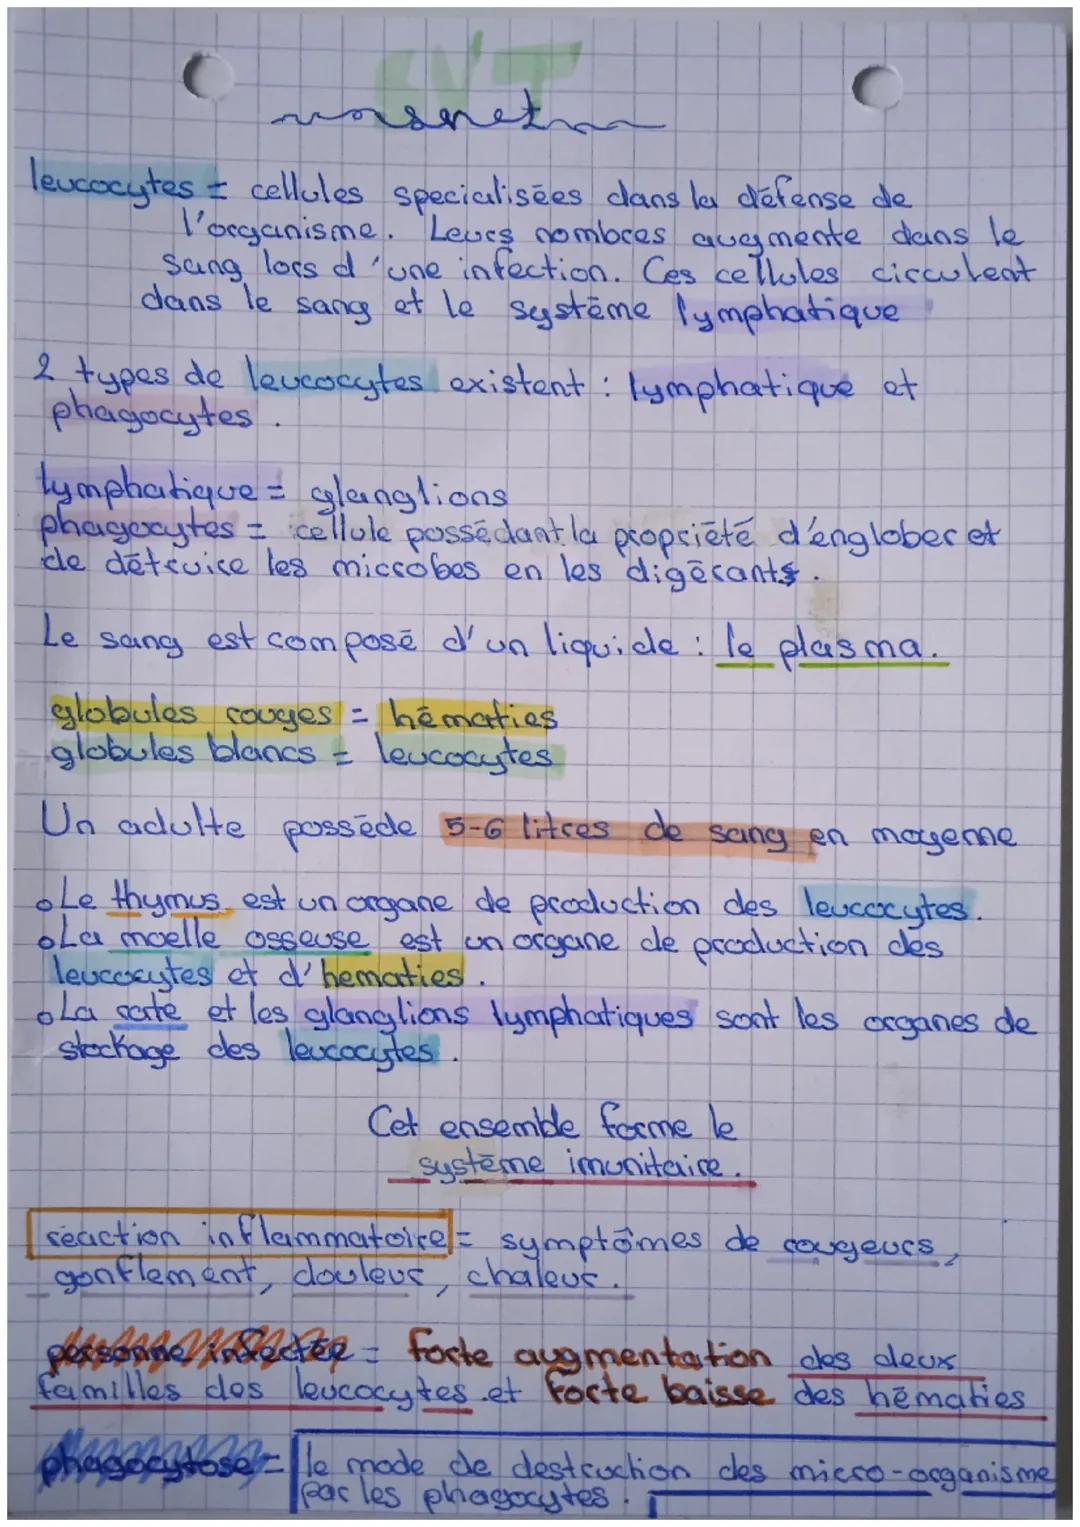 SVT
leucocytes = cellules specialisées dans la défense de
l'organisme. Leurs nombres augmente dans le
sang lors d'une infection. Ces cellules circulent
dans le sang et le système lymphatique
2 types de leucocytes existent : lymphatique et
phagocytes.
lymphatique = glanglions
phagocytes = cellule possédant la propriété d'englober et
de détruire les microbes en les digérants.
Le sang est composé d'un liquide : le plasma.
globules rouges = hématies
globules blancs = leucocytes
Un adulte possède 5-6 litres de sang en moyenne
Le thymus est un organe de production des leucocytes.
La moelle osseuse est un organe de production des
leucocytes et d'hematies.
La rate et les glanglions lymphatiques sont les organes de
stockage des leucocytes.
Cet ensemble forme le
système imunitaire.
réaction inflammatoire = symptômes de rougeurs,
gonflement, douleur, chaleur.
personne infectée = forte augmentation des deux
familles des leucocytes et forte baisse des hématies
phagocytose = le mode de destruction des micro-organisme
par les phagocytes.